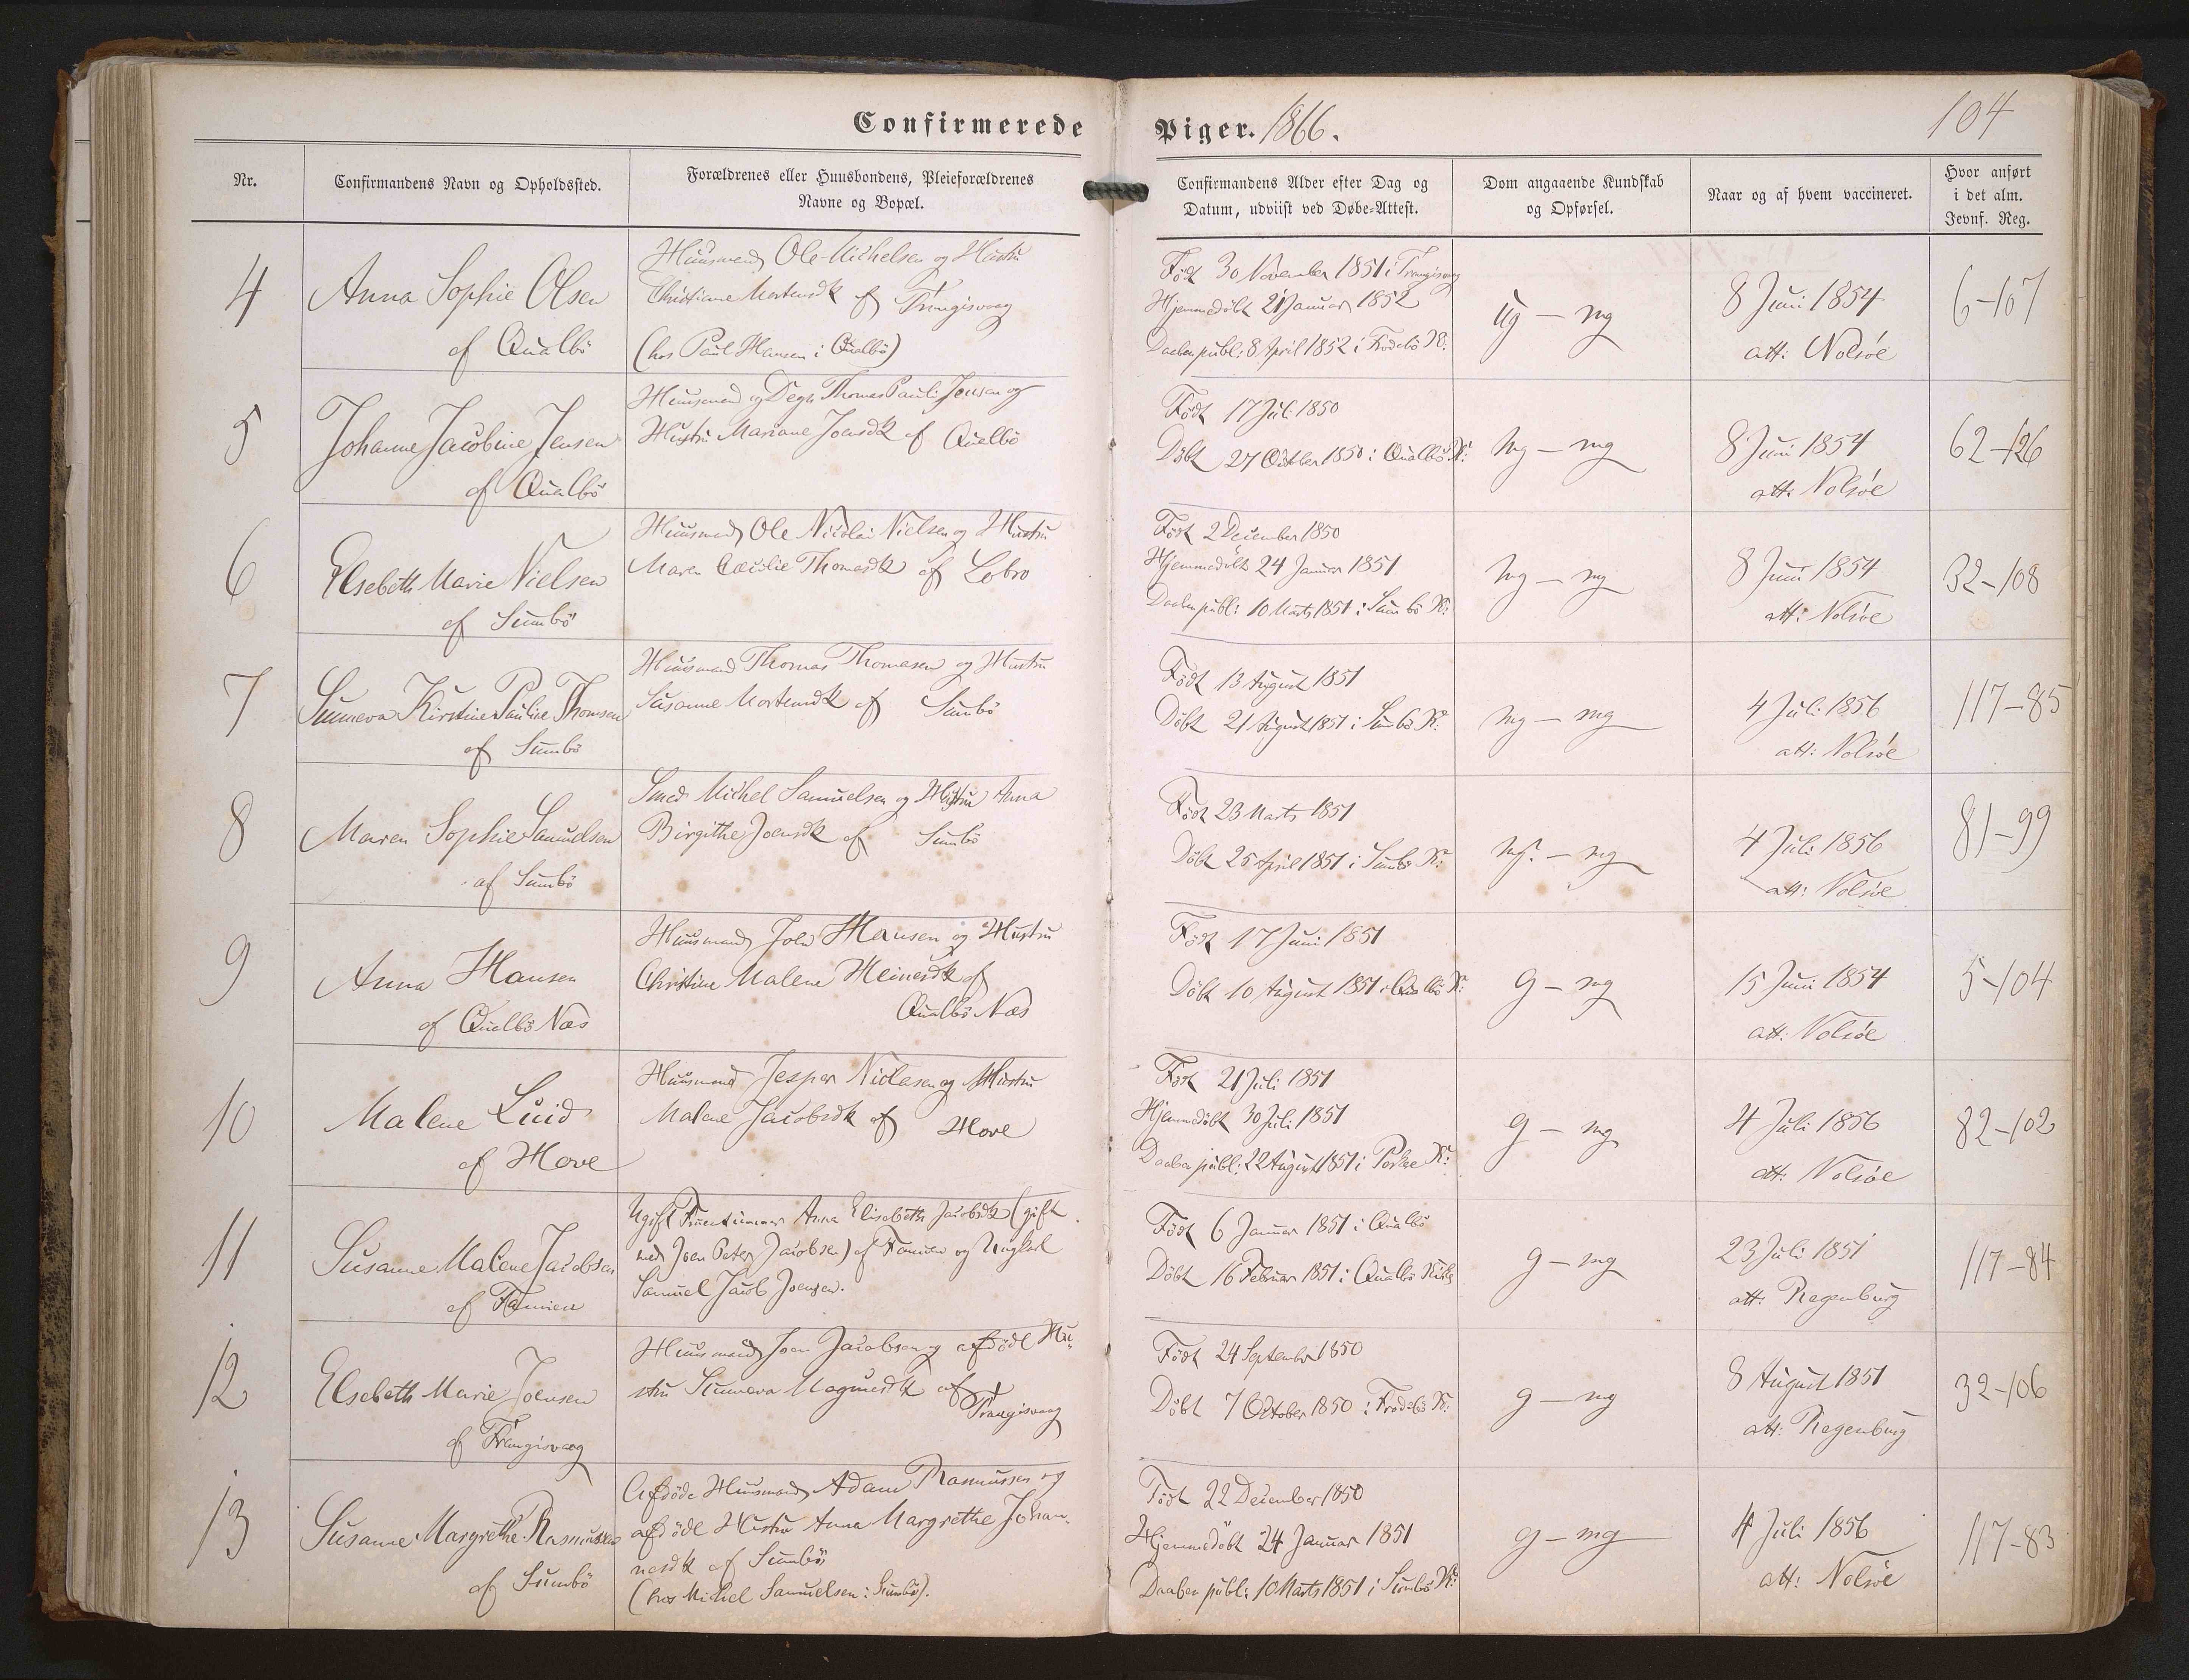 Confirmerede Piger. 1866.
104
Nr.
Confirmandens Navn og Opholdssted.
Forældrenes eller Huusbondens, Pleieforældrenes
Navne og Bopæl.
Confirmandens Alder efter Dag og
Datum, udviist ved Døbe-Attest.
Dom angaaende Kundskab
og Opførsel.
Naar og af hvem vaccineret.
Hvor anført
i det alm.
Jevnf. Reg.
4
Anna Sophie Olsen
af Qualbö
Huusmand Ole Michelsen og Hustru
Christiane Mortensdt af Trangisvaag
(hos Paul Hansen i Qualbö)
Født 30 November 1851 i Trangisvaag
Hjemmedöbt 21 Januar 1852
Daaben publ: 8 April 1852 i Frodebö K:
ug - mg
8 Juni 1854
att: Nolsöe
6-107
5
Johanne Jacobine Jensen
af Qualbö
Huusmand og Degn Thomas Pauli Jensen og
Hustru Mariane Joensdt af Qualbö
Født 17 Juli 1850
Döbt 27 October 1850 i Qualbö K:
mg - mg
8 Juni 1854
att: Nolsöe
62-126
6
Elsebeth Marie Nielsen
af Sumbö
Huusmand Ole Nicolai Nielsen og Hustru
Maren Cæcilie Thomasdt af Lobro
Født 2 December 1850
Hjemmedöbt 24 Januar 1851
Daaben publ: 10 Marts 1851 i Sumbö K:
mg - mg
8 Juni 1854
att: Nolsöe
32-108
7
Sunneva Kirstine Pauline Thomsen
af Sumbö
Huusmand Thomas Thomasen og Hustru
Susanne Mortensdt af Sumbö
Født 13 August 1851
Döbt 21 August 1851 i Sumbö K:
mg - mg
4 Juli 1856
att: Nolsöe
117-85
8
Maren Sophie Samuelsen
af Sumbö
Smed Michel Samuelsen og Hustru Anna
Birgithe Joensdt af Sumbö
Født 23 Marts 1851
Döbt 25 April 1851 i Sumbö K:
mg. - mg
4 Juli 1856
att: Nolsöe
81-99
9
Anna Hansen
af Qualbö Næs
Huusmand Joen Hansen og Hustru
Christine Malene Heinesdt af
Qualbö Næs
Født 17 Juni 1851
Döbt 10 August 1851 i Qualbö K:
g - mg
15 Juni 1854
att: Nolsöe
5-104
10
Malene Luid
af Hove
Huusmand Jesper Niclasen og Hustru
Malene Jacobsdt af Hove
Født 21 Juli 1851
Hjemmedöbt 30 Juli 1851
Daaben publ: 22 August 1851 i Porkere K:
g - mg
4 Juli 1856
att: Nolsöe
82-102
11
Susanne Malene Jacobsen
af Famien
Ugift Fruentimmer Anna Elisabeth Jacobsdt (gift
med Joen Peter Jacobsen) af Famien og Ungkarl
Samuel Jacob Joensen.
Født 6 Januar 1851 i Qualbö
Döbt 16 Februar 1851 i Qualbö Kirke
g - mg
23 Juli 1851
att: Regenburg
117-84
12
Elsebeth Marie Joensen
af Trangisvaag
Huusmand Joen Jacobsen og afdöde Hu-
stru Sunneva Magnusdt af
Trangisvaag
Født 24 September 1850
Döbt 7 October 1850 i Frodebö K:
g - mg
8 August 1851
att: Regenburg
32-106
13
Susanne Margrethe Rasmussen
af Sumbö
Afdöde Huusmand Adam Rasmussen og
afdöde Hustru Anna Margrethe Johan-
nesdt af Sumbö
(hos Michel Samuelsen i Sumbö).
Født 22 December 1850
Hjemmedöbt 24 Januar 1851
Daaben publ: 10 Marts 1851 i Sumbö K:
g - mg
4 Juli 1856
att: Nolsöe
117-83